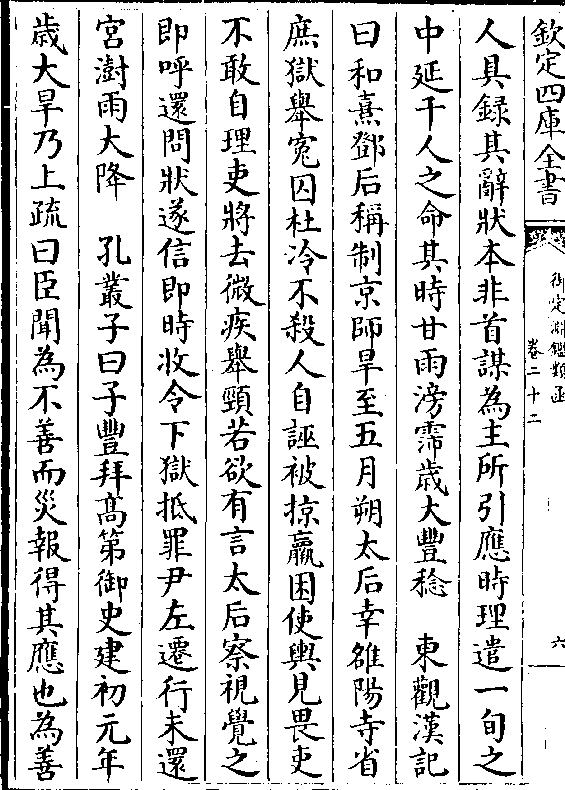 欽定四庫全書
御定淵鑑類函
卷二十二
六
人具録其辭狀本非首謀為主所引應時理遣一旬之
中延千人之命其時甘雨滂霈歳大豐稔　東觀漢記
曰和熹鄧后稱制京師旱至五月朔太后幸雒陽寺省
庶獄舉寃囚杜泠不殺人自誣被掠羸困使輿見畏吏
不敢自理吏將去微疾舉頸若欲有言太后察視覺之
即呼還問狀遂信即時收令下獄抵罪尹左遷行未還
宮澍雨大降　孔叢子曰子豐拜髙第御史建初元年
歳大旱乃上疏曰臣聞為不善而災報得其應也為善